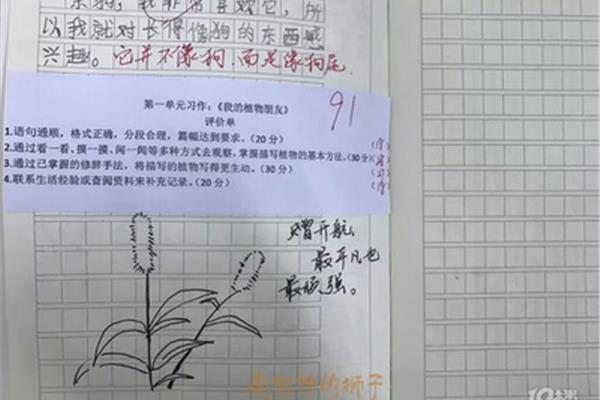 以我就对长得像狗的东西感
兴趣。它并不像狗,而是像狗尾。
91
第一单元习作:《我的植物朋友》
评价单
1.语句通顺,格式正确,分段合理,篇幅达到要求。(20分)
2.通过看一看、摸一摸、闻一闻等多种方式去观察,掌握描写植物的基本方法。(30分)
3.通过已掌握的修辞手法,将描写的植物写得更生动。(30分)
4.联系生活经验或查阅资料来补充记录。(20分)
赠开航,
最平凡也
最顽强。